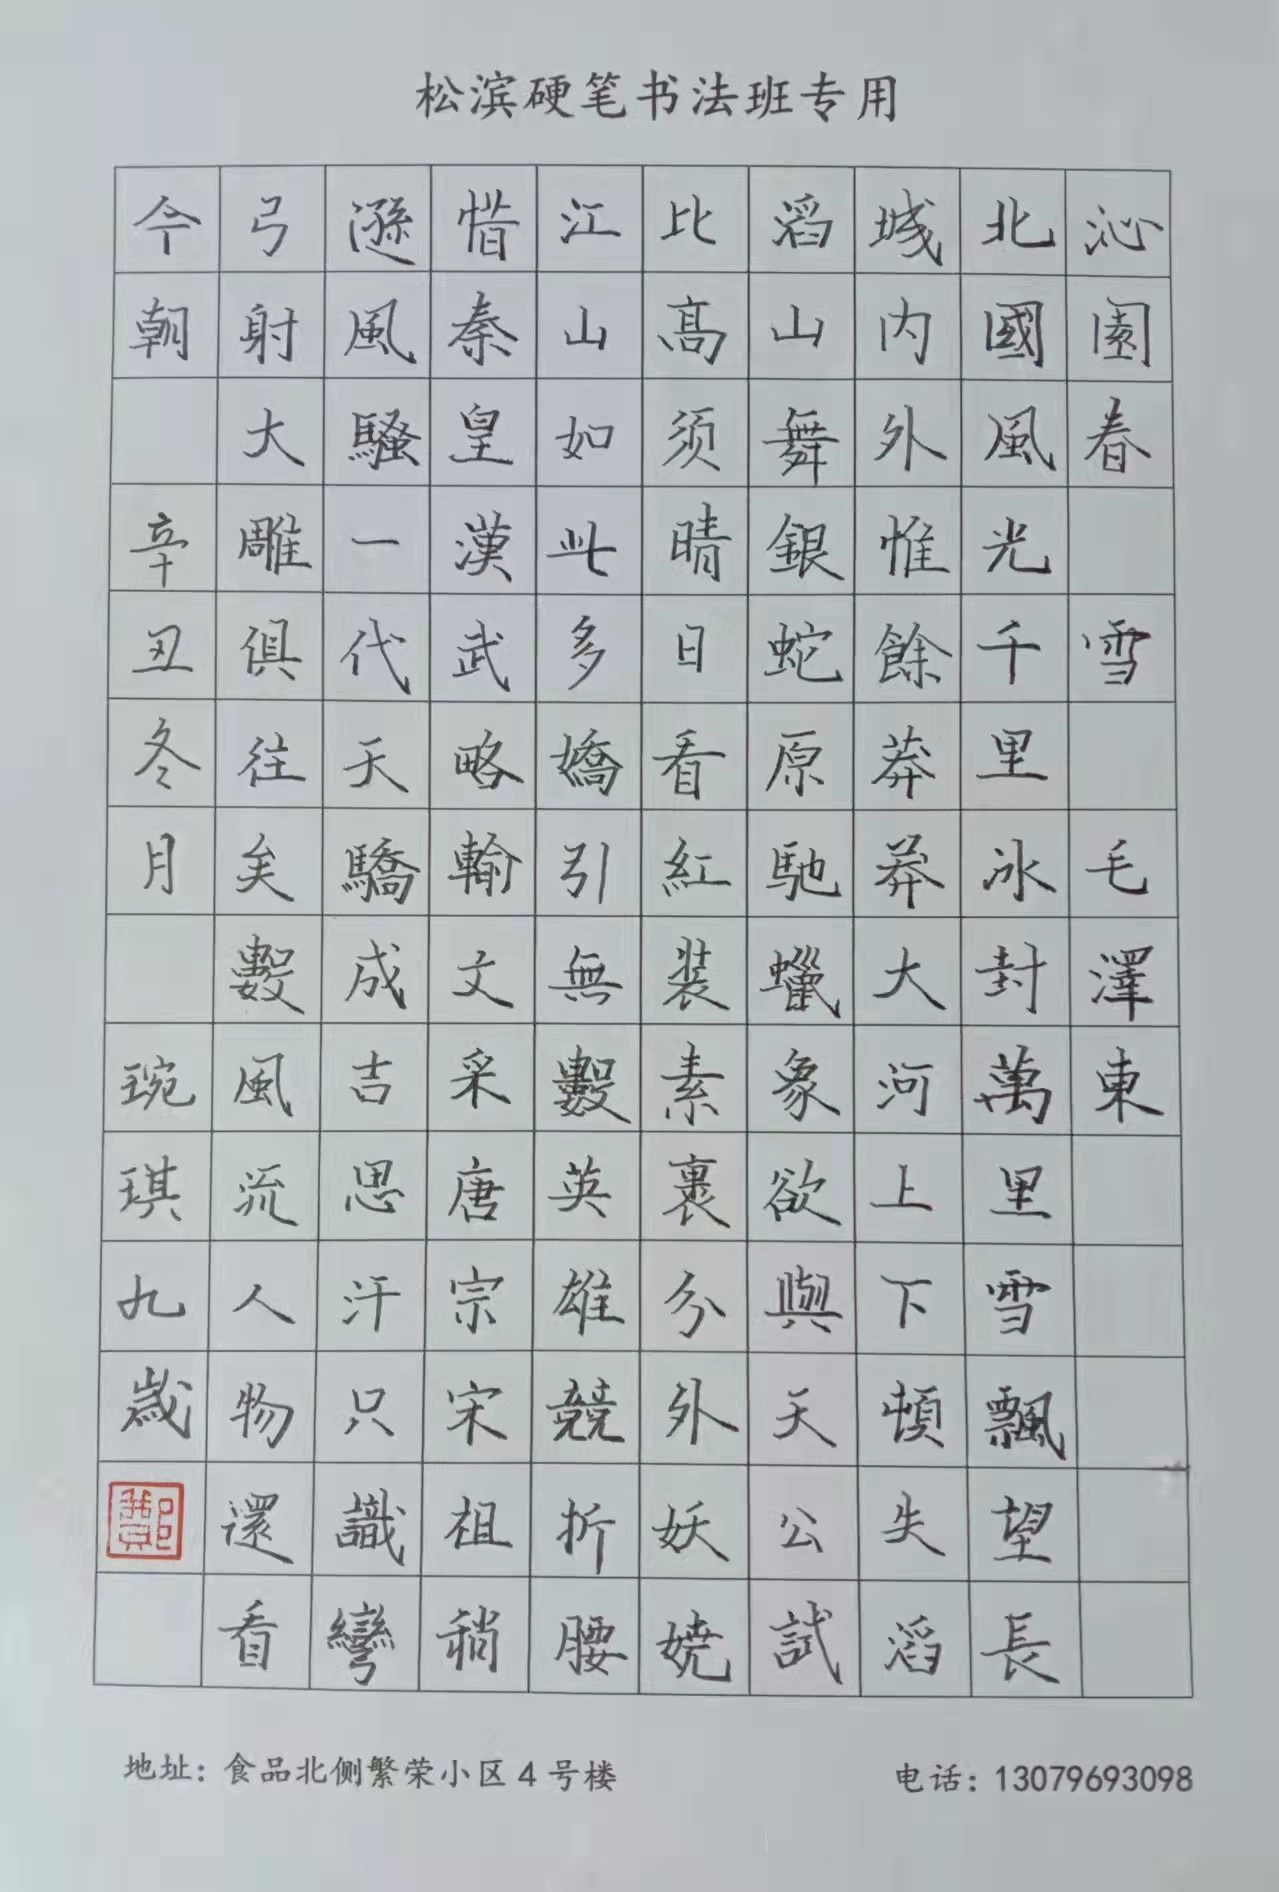 松滨硬笔书法班专用
沁園春 雪 毛澤東
北國風光千里冰封萬里雪飄望長
城内外惟餘莽莽大河上下頓失滔
滔山舞銀蛇原馳蠟象欲與天公試
比高须晴日看紅装素裹分外妖娆
江山如此多嬌引無數英雄競折腰
惜秦皇漢武略輸文采唐宗宋祖稍
遜風騷一代天驕成吉思汗只識彎
弓射大雕俱往矣數風流人物還看
今朝 辛丑冬月 琬琪九歲
地址：食品北侧繁荣小区4号楼
电话：13079693098